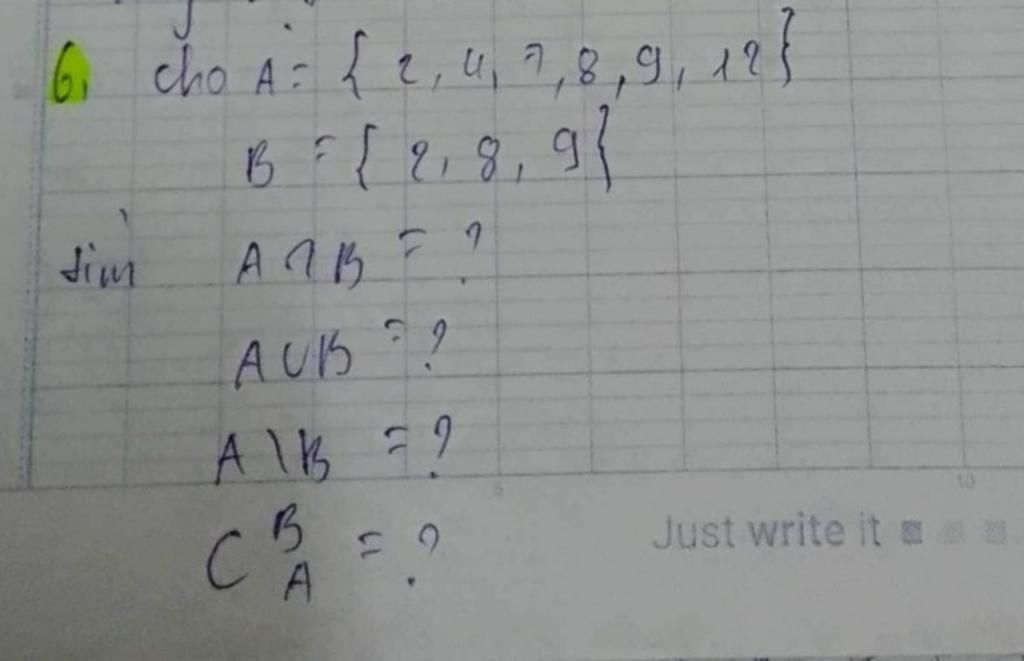 6, cho A = { 2, 4, 7, 8, 9, 12 }
B = { 2, 8, 9 }
tìm A ∩ B = ?
A ∪ B = ?
A \ B = ?
C^B_A = ?
Just write it
10